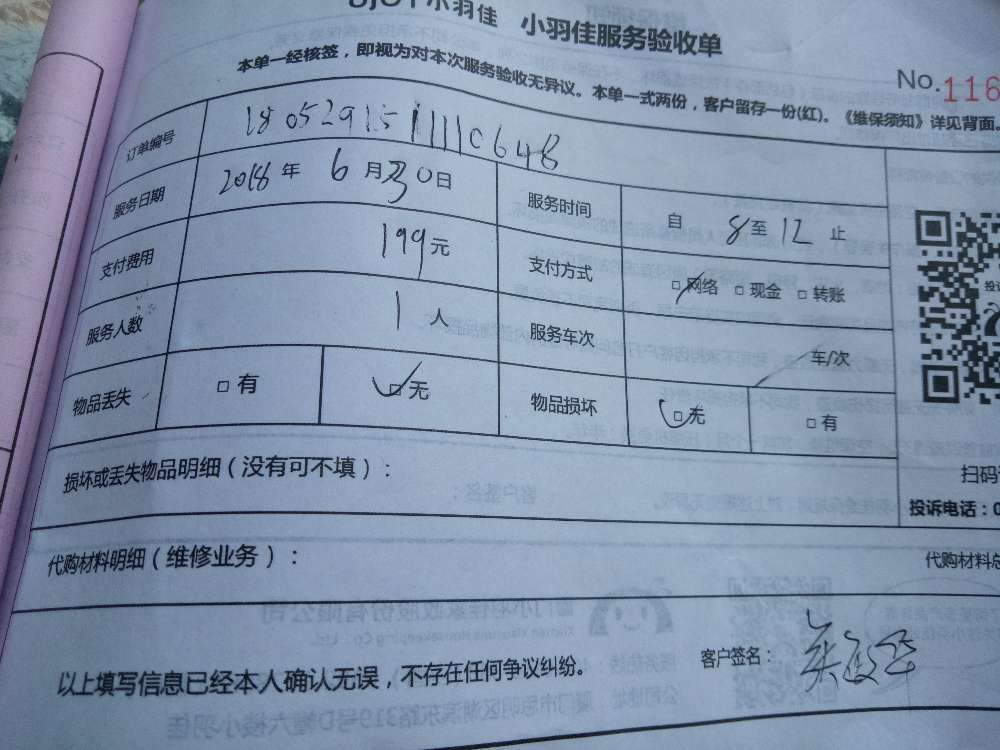 小羽佳 小羽佳服务验收单
No.116
本单一经核签，即视为对本次服务验收无异议。本单一式两份，客户留存一份(红)。《维保须知》详见背面。
订单编号 1805291511110648
服务日期 2018年 6月30日 服务时间 自 8至12止
支付费用 199元 支付方式 □网络 □现金 □转账
服务人数 1人 服务车次 车/次
物品丢失 □有 □无 物品损坏 □无 □有
扫码
损坏或丢失物品明细（没有可不填）：
投诉电话：0
代购材料明细（维修业务）： 代购材料总
以上填写信息已经本人确认无误，不存在任何争议纠纷。 客户签名：